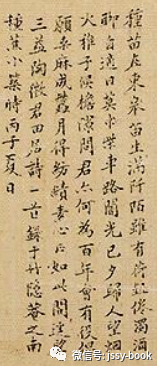 種苗在東皋苗生滿阡陌雖有荷鋤倦濁酒
聊自適日莫巾柴車路闇光已夕歸人望煙
火稚子候檐隙問君亦何為百年會有役但
願桑麻成蠶月得紡績素心正如此開逕望
三益陶徵君田居詩一首録于竹隱菴之南
種蕉小築時丙子夏日
微信号: jssy-book